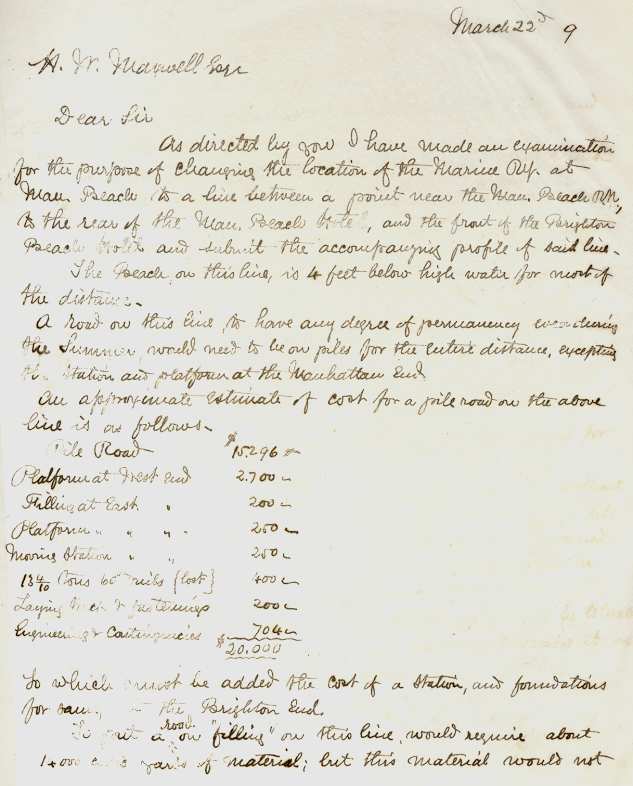 March 22d 9
H. W. Maxwell Esqr
Dear Sir
As directed by you I have made an examination
for the purpose of changing the location of the Marine Ry. at
Man. Beach to a line between a point near the Man. Beach RR,
to the rear of the Man. Beach Hotel, and the front of the Brighton
Beach Hotel and submit the accompanying profile of said line.
The Beach, on this line, is 4 feet below high water for most of
the distance.
A road on this line, to have any degree of permanency even during
the Summer, would need to be on piles for the entire distance, excepting
the Station and platform at the Manhattan End.
An approximate estimate of cost for a pile road on the above
line is as follows.
Pile Road $15.296
Platform at West End 2.700
Filling at East. " 200
Platform " " " 250
Moving Station " " 250
13 4/10 tons 60 rails (lost) 400
Laying track & fastenings 200
Engineering & Contingencies 704
$20.000
To which must be added the cost of a Station, and foundations
for same, the Brighton End.
To put a road on "filling" on this line, would require about
14000 yards of material; but this material would not